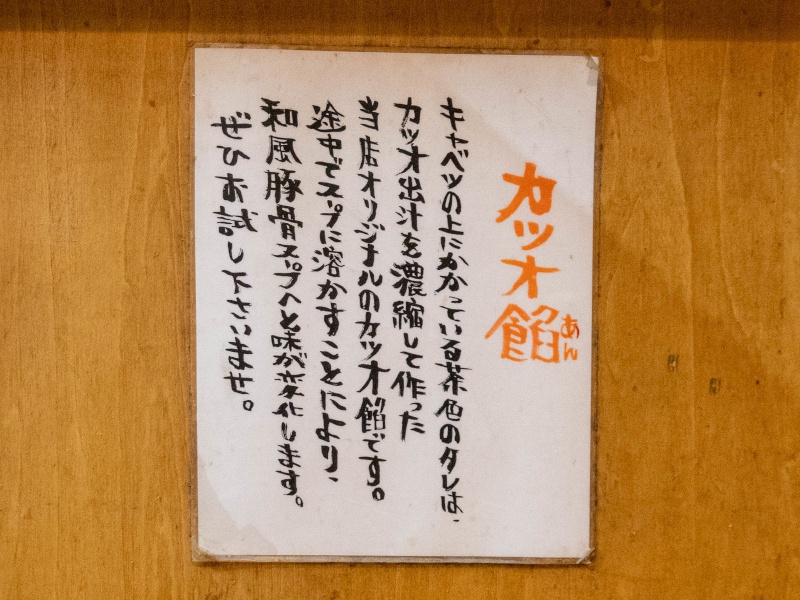 カツオ餡
あん
キャベツの上にかかっている茶色のタレは、
カツオ出汁を濃縮して作った
当店オリジナルのカツオ餡です。
途中でスープに溶かすことにより、
和風豚骨スープへと味が変化します。
ぜひお試し下さいませ。